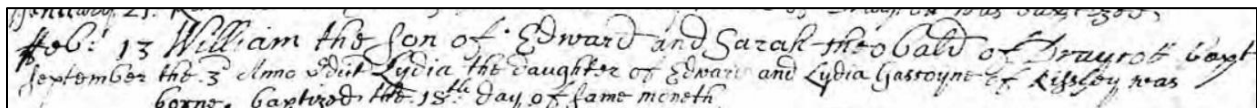 Feb: 13 William the Son of Edward and Sarah theobald of Draycott bapt
September the 3d Anno Lydia the daughter of Edward and Lydia Gascoyne of Rissley was
borne, baptized the 18th day of same moneth